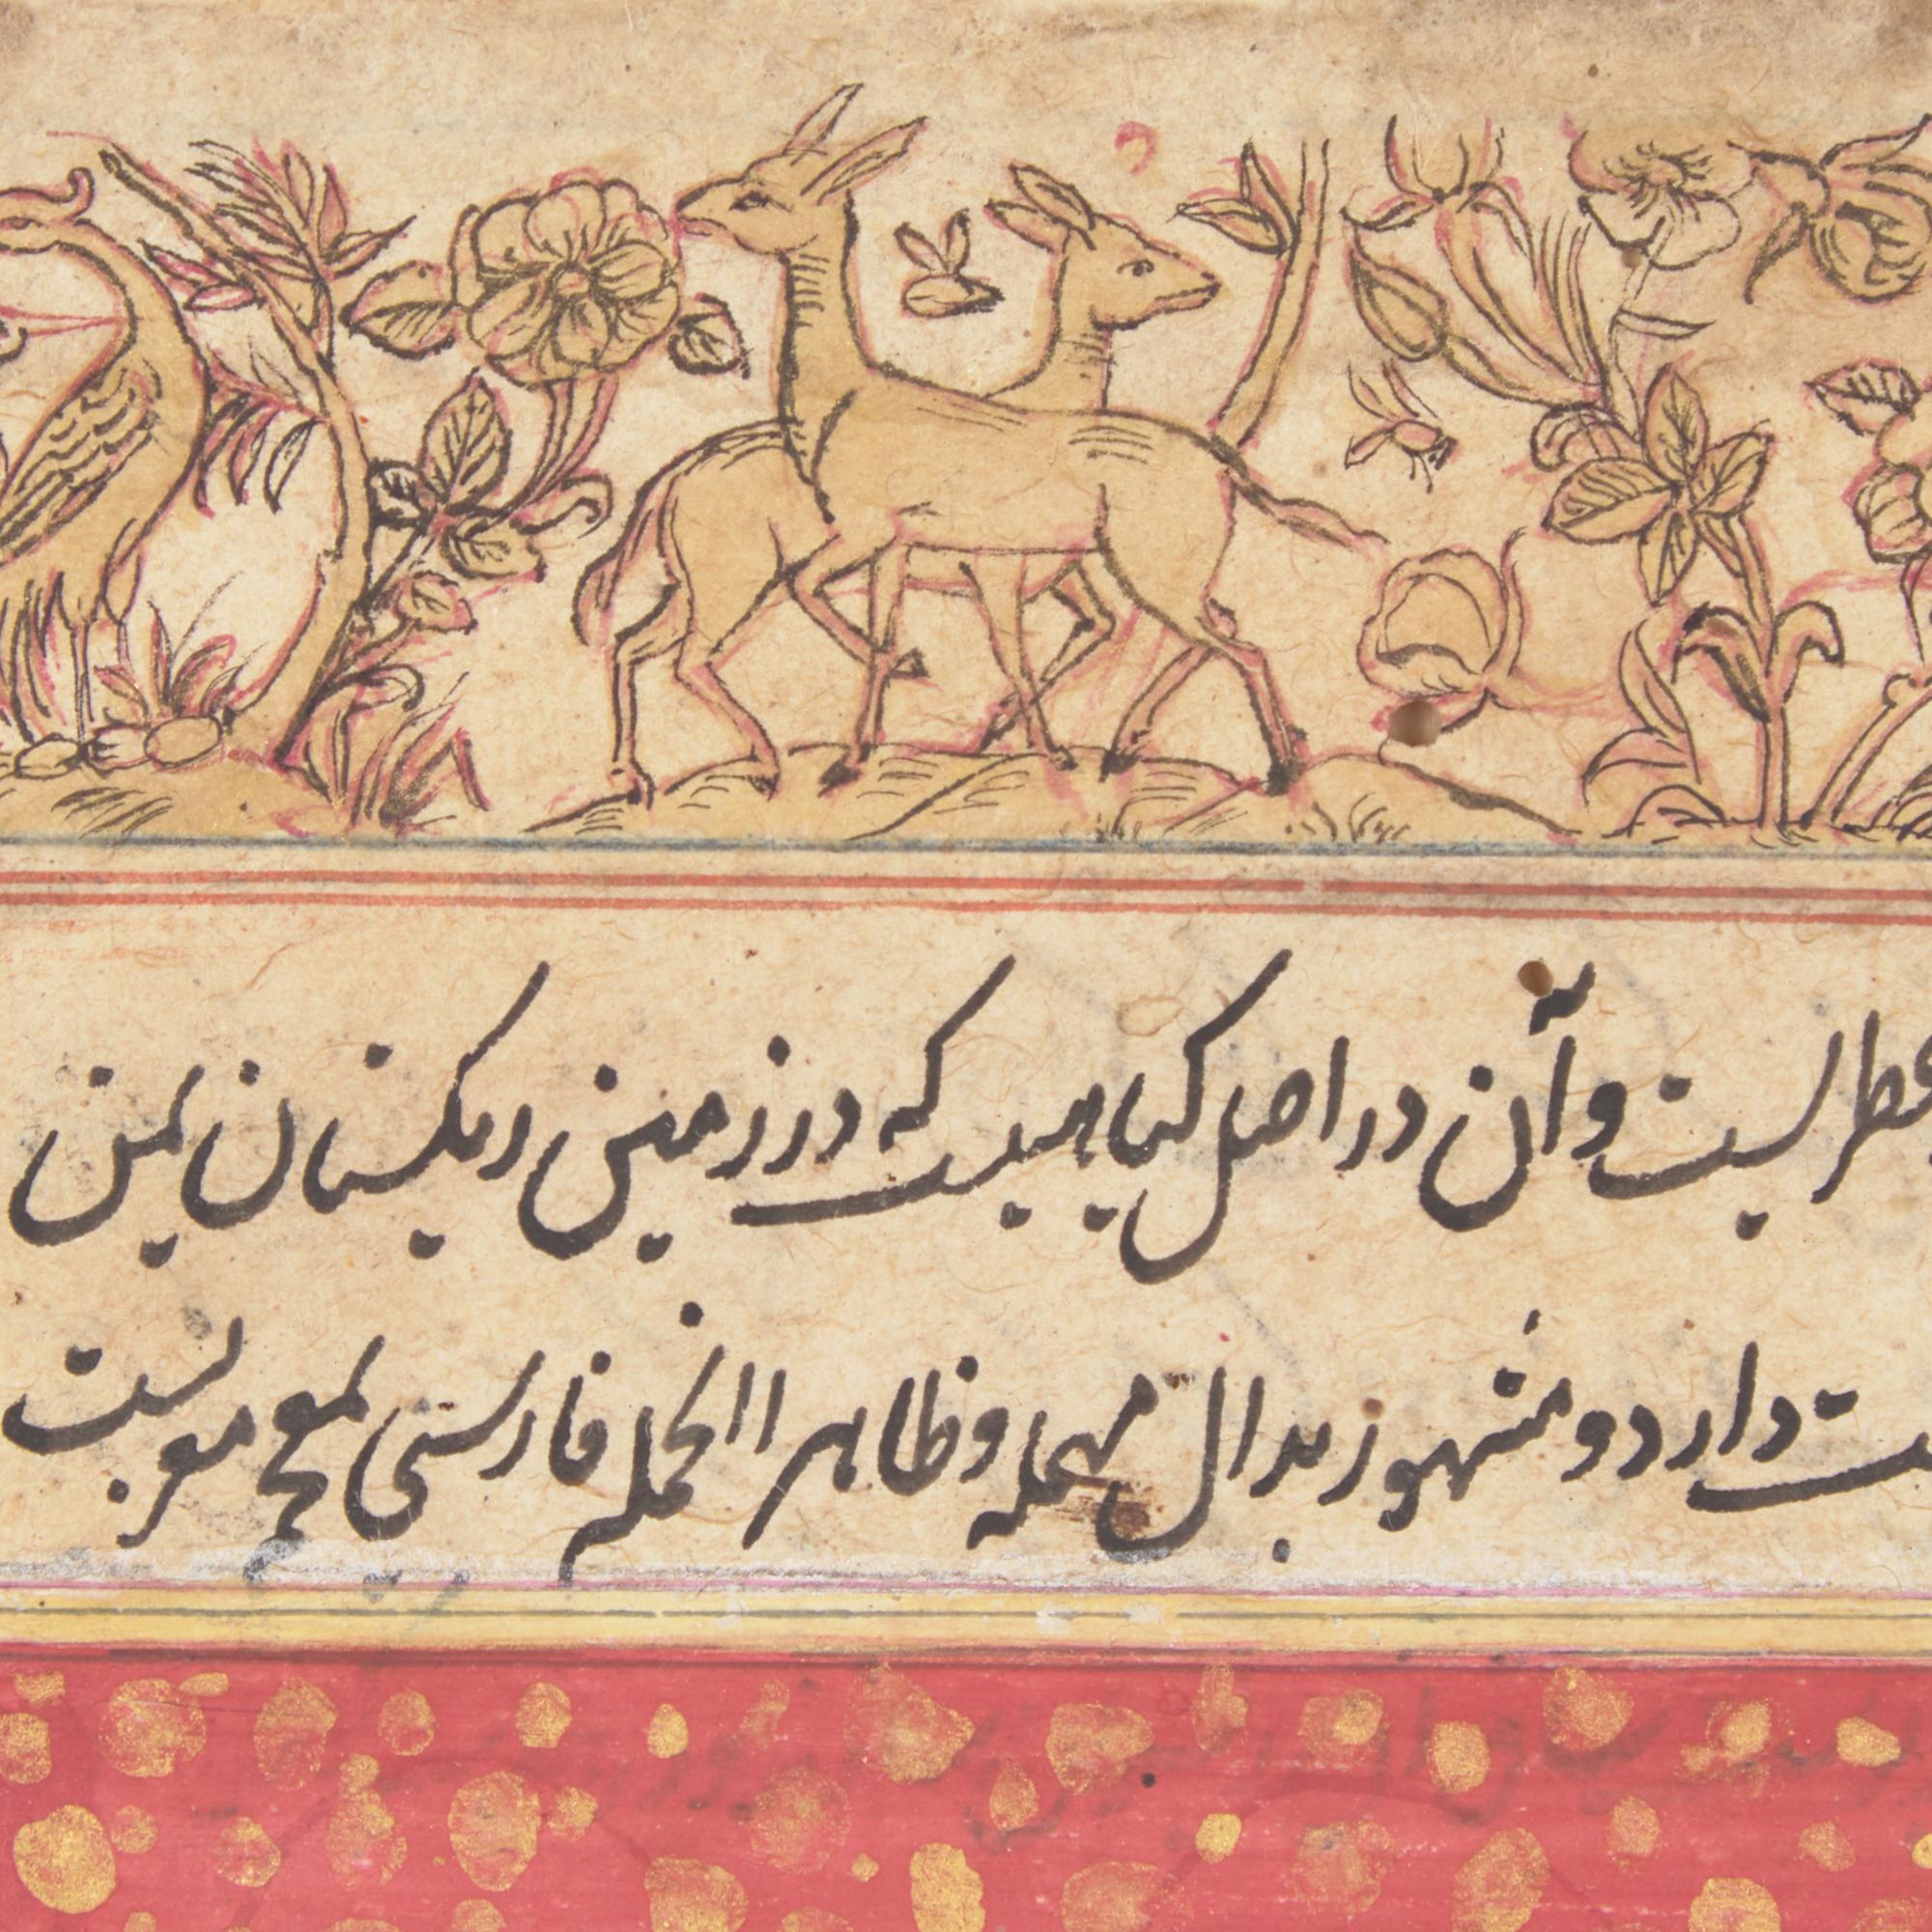 عطریست و آن در اصل گیاهیست که در زمین ریگستان یمن
دارد و مشهور بدال مهمله و ظاهرا الخمله فارسی معرب